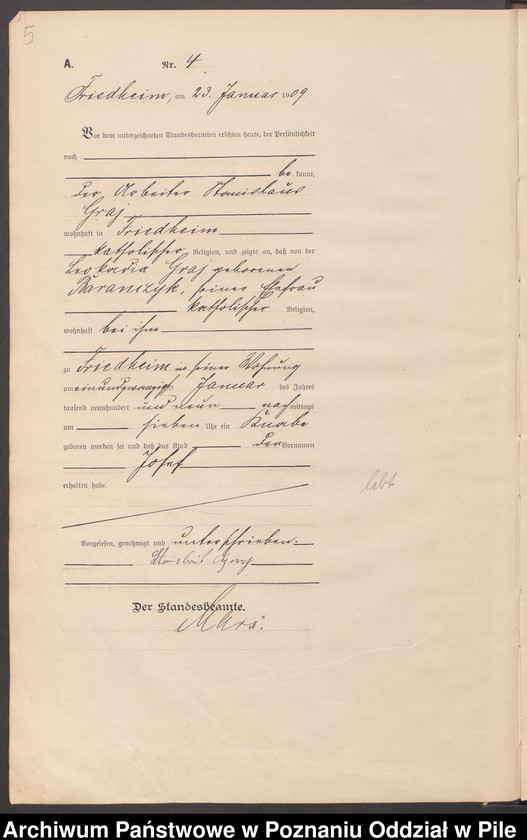 5
A. Nr. 4
Friedheim, am 23. Januar 1909
Vor dem unterzeichneten Standesbeamten erschien heute, der Persönlichkeit
nach
be kannt,
der Arbeiter Stanislaus
Graj
wohnhaft in Friedheim
katholischer Religion, und zeigte an, daß von der
Leokadia Graj geborenen
Baranczyk, seiner Ehefrau
katholischer Religion,
wohnhaft bei ihm
zu Friedheim in seiner Wohnung
am einundzwanzigsten Januar des Jahres
tausend neunhundert und neun nachmittags
um sieben Uhr ein Knabe
geboren worden sei und daß das Kind den Vornamen
Josef
erhalten habe.
lebt
Vorgelesen, genehmigt und unterschrieben.
Graj
Der Standesbeamte.
Archiwum Państwowe w Poznaniu Oddział w Pile